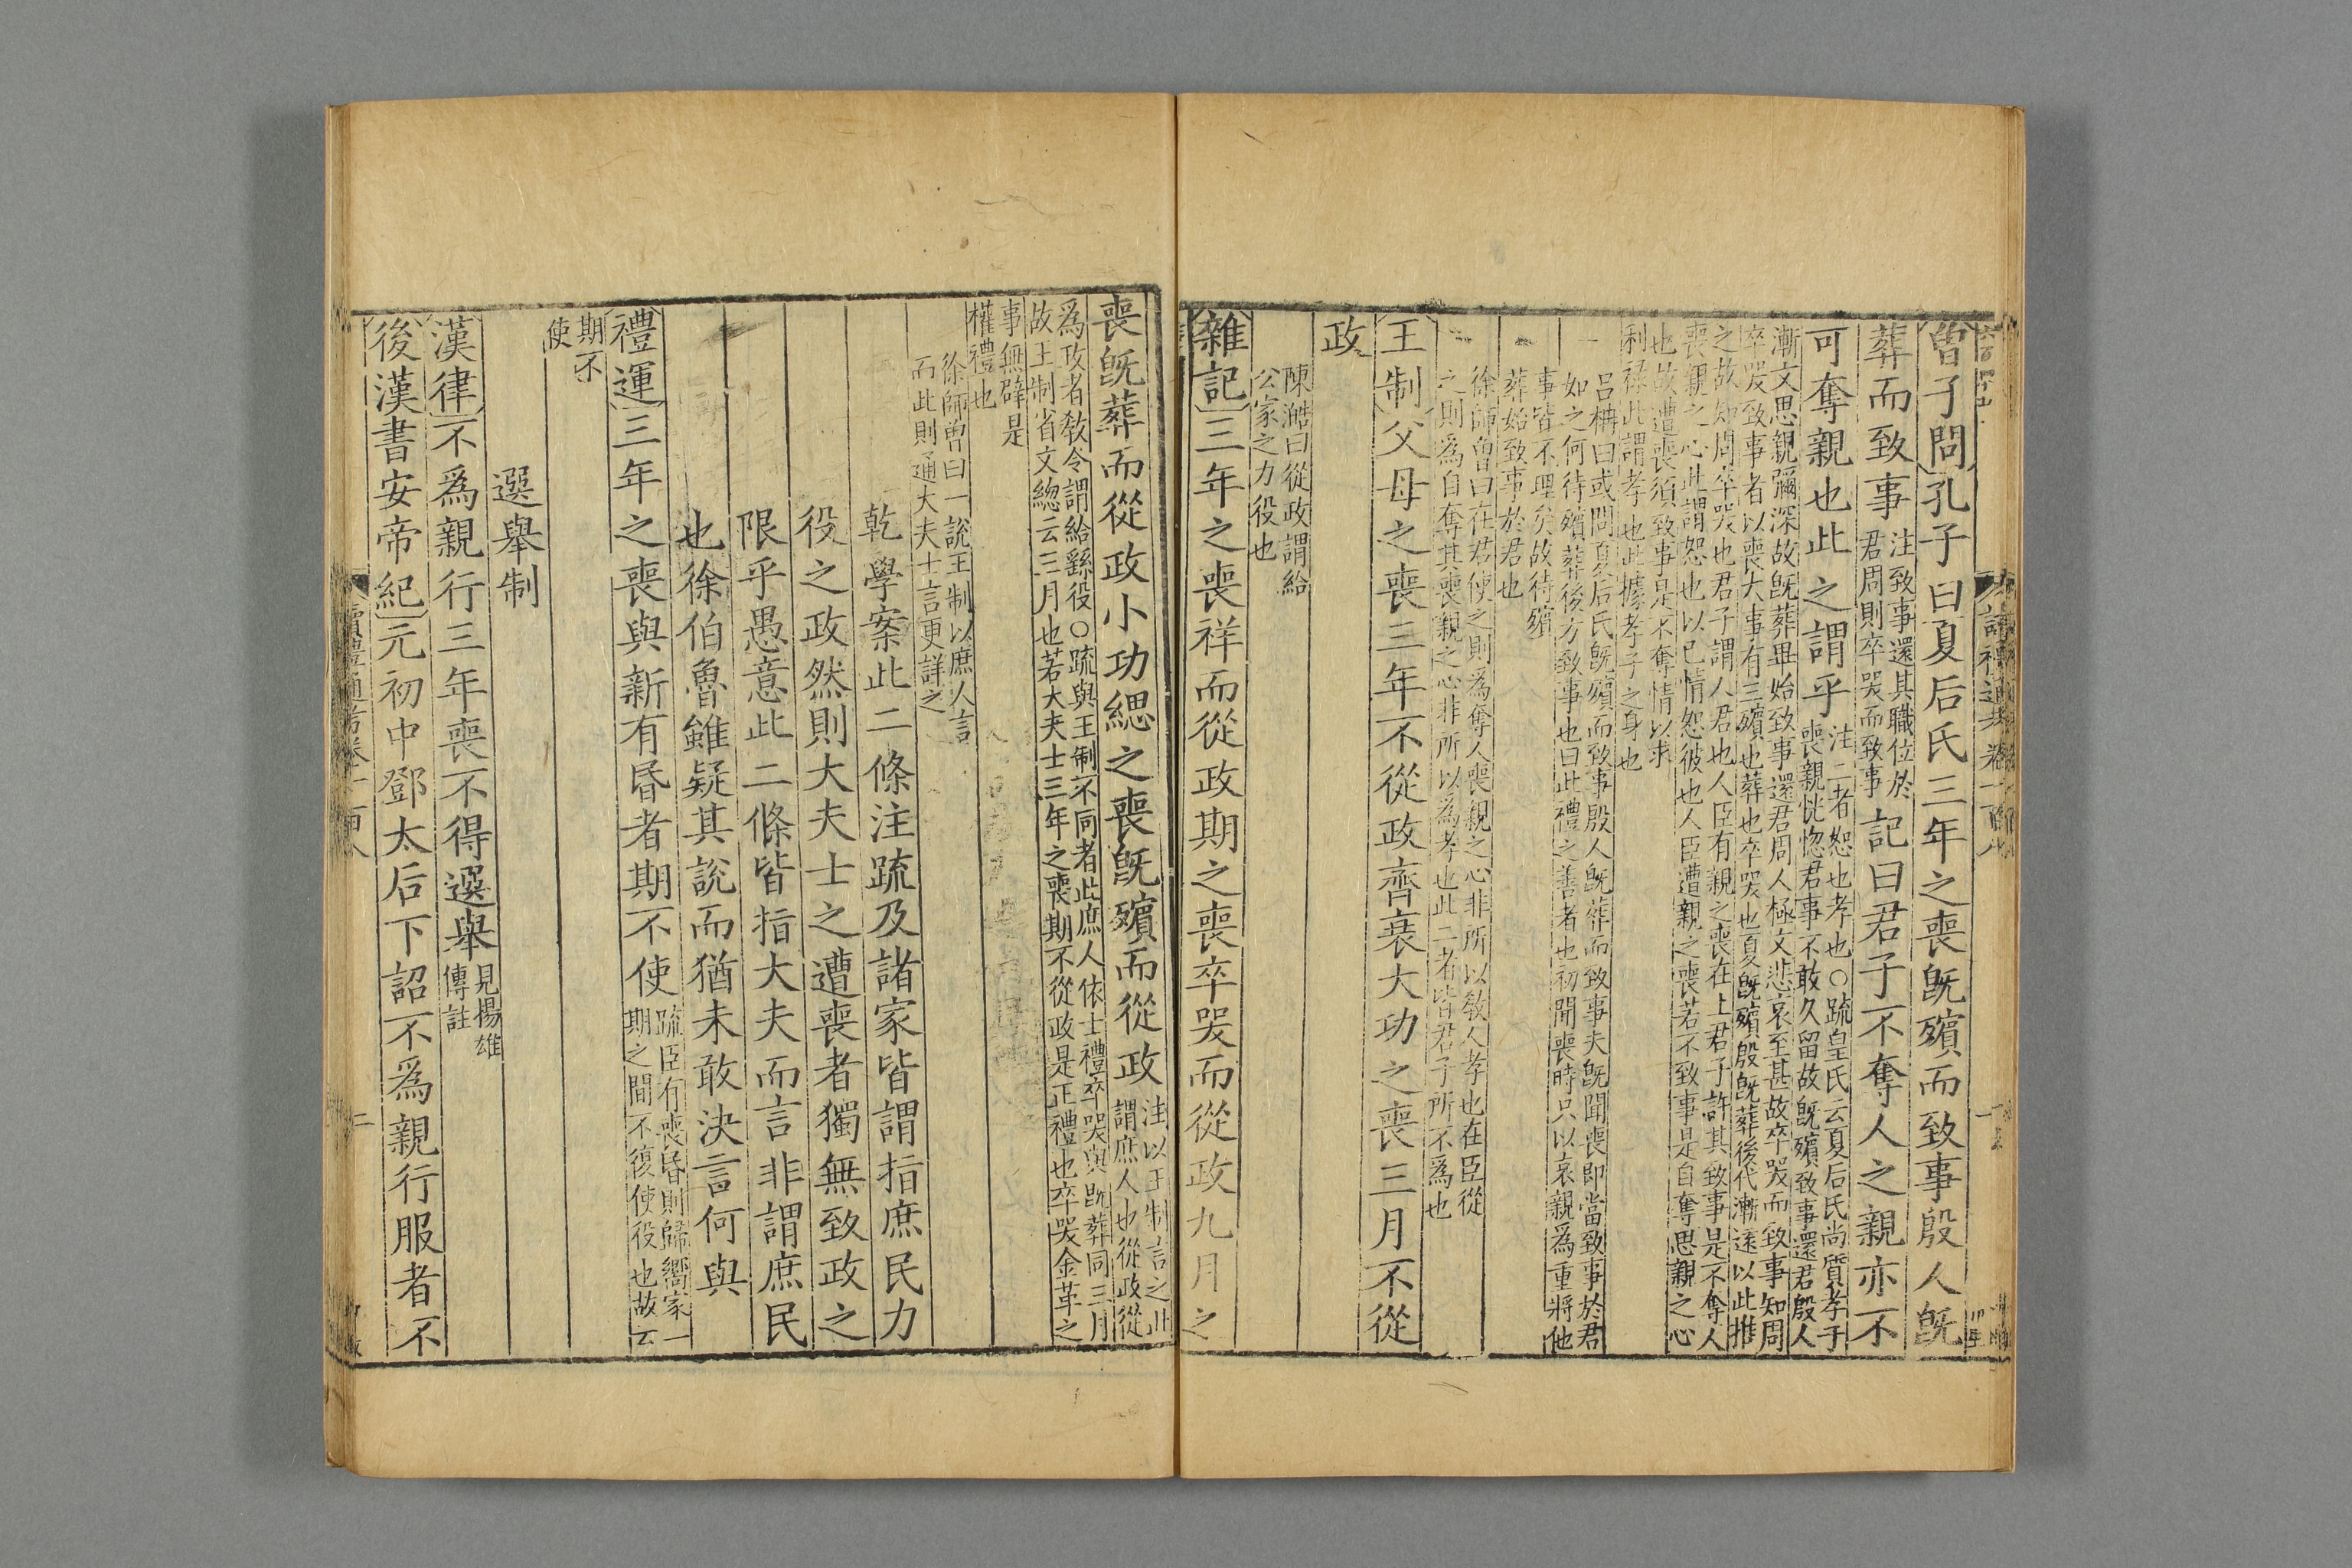 曾子問孔子曰夏后氏三年之喪旣殯而致事殷人旣
葬而致事
注致事還其職位於
君周則卒哭而致事
記曰君子不奪人之親亦不
可奪親也此之謂乎
注二者恕也孝也○疏皇氏云夏后氏尚質孝子
喪親恍惚君事不敢久留故旣殯致事還君殷人
漸文思親彌深故旣葬畢始致事還君周人極文悲哀至甚故卒哭而致事知周
卒哭致事者以喪大事有三殯也葬也卒哭也夏旣殯殷旣葬後代漸遠以此推
之故知周卒哭也君子謂人君也人臣有親之喪在上君子許其致事是不奪人
喪親之心此謂恕也以己情恕彼也人臣遭親之喪若不致事是自奪思親之心
也故遭喪須致事是不奪情以求
利祿此謂孝也此據孝子之身也
呂柟曰或問夏后氏旣殯而致事殷人旣葬而致事夫旣聞喪即當致事於君
如之何待殯葬後方致事也曰此禮之善者也初聞喪時只以哀親爲重將他
事皆不理矣故待殯
葬始致事於君也
徐師曾曰在君使之則為奪人喪親之心非所以敎人孝也在臣從
之則爲自奪其喪親之心非所以為孝也此二者皆君子所不爲也
王制父母之喪三年不從政齊衰大功之喪三月不從
政
陳澔曰從政謂給
公家之力役也
雜記三年之喪祥而從政期之喪卒哭而從政九月之
喪旣葬而從政小功緦之喪旣殯而從政
注以王制言之此
謂庶人也從政從
爲政者敎令謂給繇役○疏與王制不同者此庶人依士禮卒哭與旣葬同三月
故王制省文緫云三月也若大夫士三年之喪期不從政是正禮也卒哭金革之
事無辟是
權禮也
徐師曾曰一說王制以庶人言
而此則通大夫士言更詳之
乾學案此二條注疏及諸家皆謂指庶民力
役之政然則大夫士之遭喪者獨無致政之
限乎愚意此二條皆指大夫而言非謂庶民
也徐伯魯雖疑其說而猶未敢決言何與
禮運三年之喪與新有昏者期不使
疏臣有喪昏則歸嚮家一
期之間不復使役也故云
期不
使
選舉制
漢律不爲親行三年喪不得選舉
見揚雄
傳註
後漢書安帝紀元初中鄧太后下詔不爲親行服者不
讀禮通考卷一百八
二